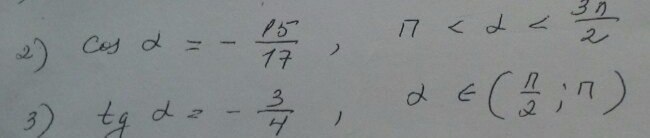 2) cos α = - 15/17 , π < α < 3π/2
3) tg α = - 3/4 , α ∈ (π/2 ; π)